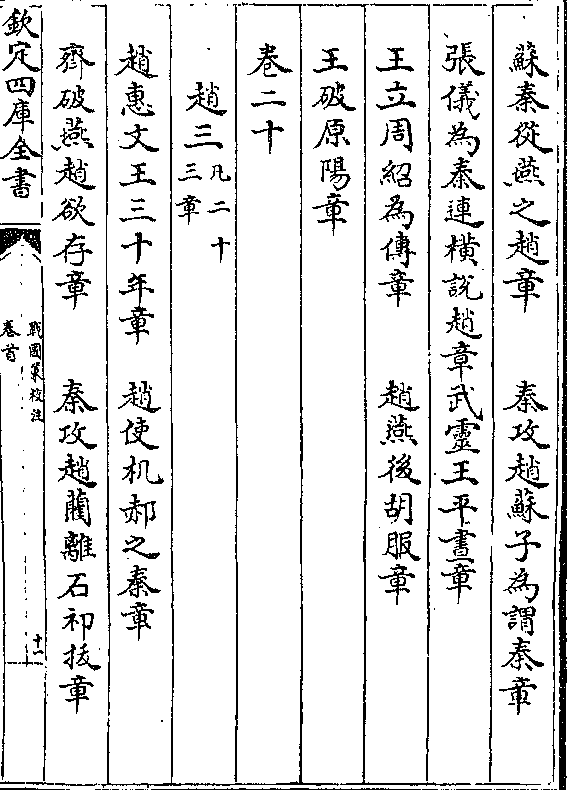 蘇秦從燕之趙章　秦攻趙蘇子為謂秦章
張儀為秦連橫說趙章武靈王平晝章
王立周紹為傅章　趙燕後胡服章
王破原陽章
卷二十
趙三凡二十三章
趙惠文王三十年章　趙使机郝之秦章
齊破燕趙欲存章　秦攻趙藺離石祁拔章
欽定四庫全書
戰國策校注
卷首
十一